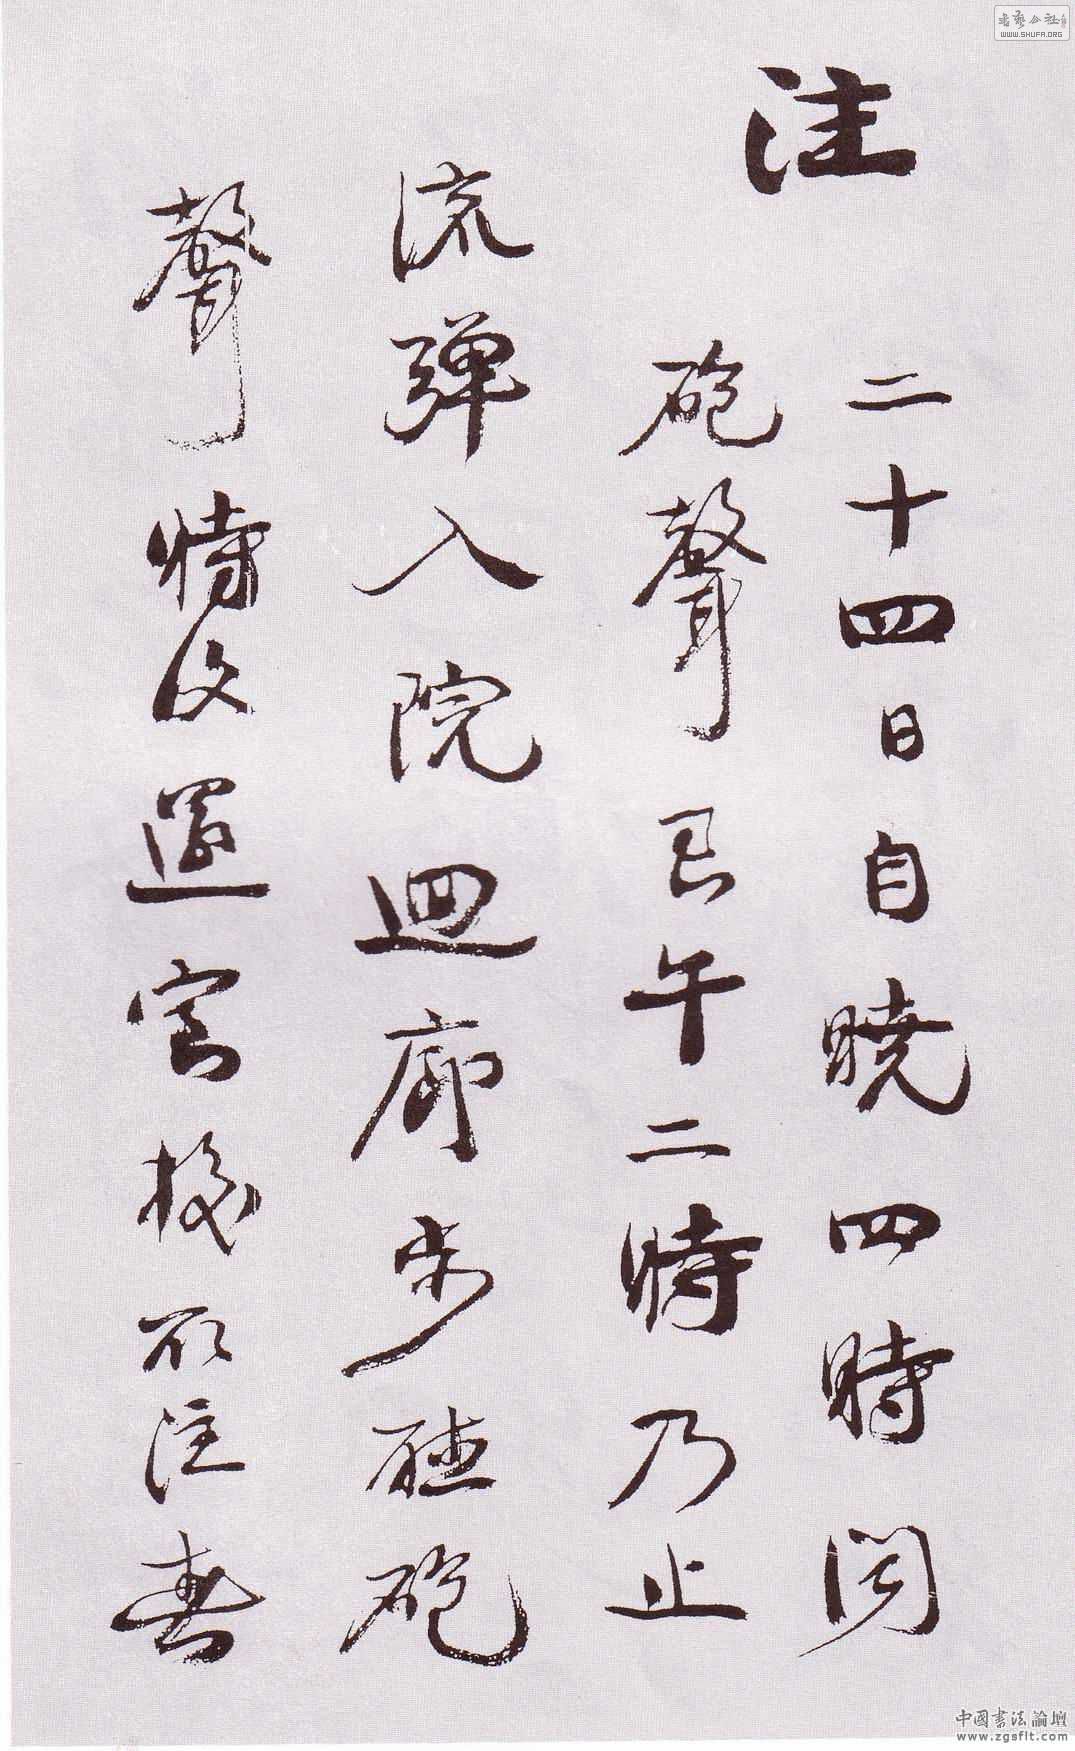 注
二十四日自曉四時聞
砲聲巳午二時乃止
流弹入院迴廊步聽砲
聲時復還室校所注書
書藝公社
WWW.SHUFA.ORG
中國書法論壇
www.zgsflt.com